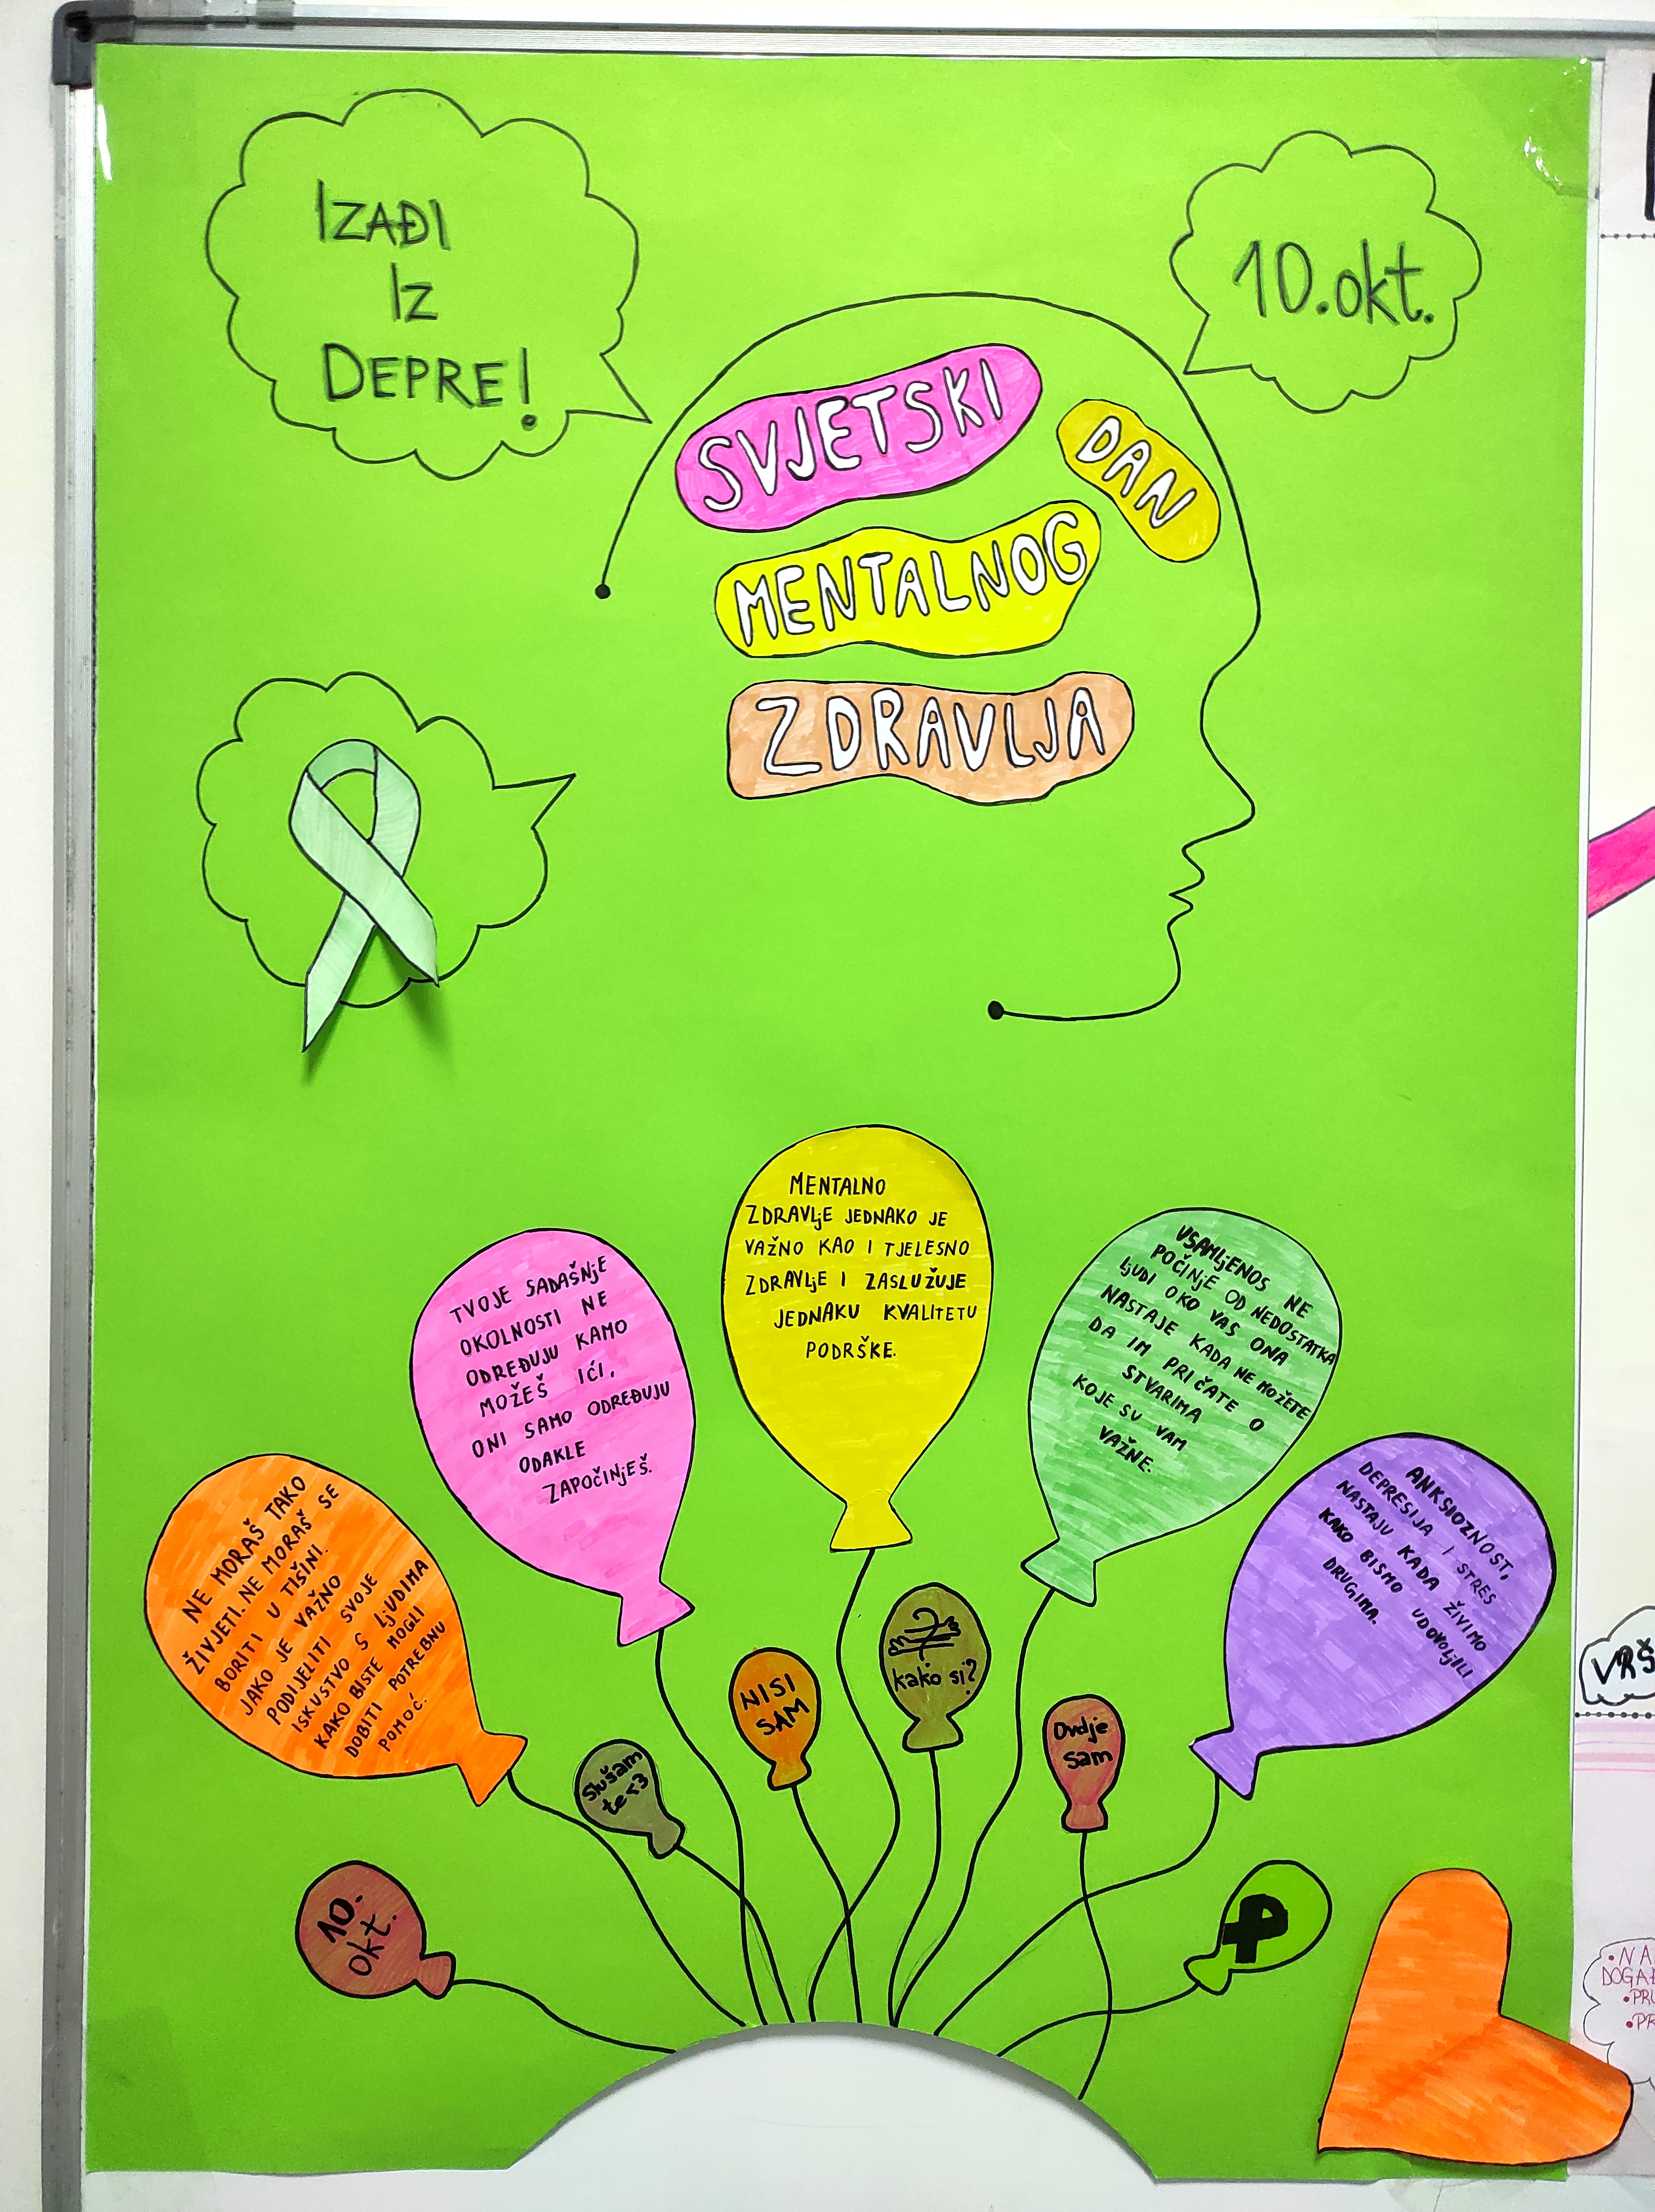 IZAĐI
IZ
DEPRE!
10.okt.
SVJETSKI
DAN
MENTALNOG
ZDRAVLJA
MENTALNO
ZDRAVLjE JEDNAKO JE
VAŽNO KAO I TJELESNO
ZDRAVLjE I ZASLUŽUJE
JEDNAKU KVALITETU
PODRŠKE.
TVOJE SADAŠNjE
OKOLNOSTI NE
ODREĐUJU KAMO
MOŽEŠ IĆI,
ONI SAMO ODREĐUJU
ODAKLE
ZAPOČINjEŠ.
USAMLjENOS NE
POČINjE OD NEDOSTATKA
LjUDI OKO VAS ONA
NASTAJE KADA NE MOŽETE
DA IM PRIČATE O
STVARIMA
KOJE SU VAM
VAŽNE.
NE MORAŠ TAKO
ŽIVJETI. NE MORAŠ SE
BORITI U TIŠINI.
JAKO JE VAŽNO
PODIJELITI SVOJE
ISKUSTVO S LjUDIMA
KAKO BISTE MOGLI
DOBITI POTREBNU
POMOĆ.
ANKSIOZNOST,
DEPRESIJA I STRES
NASTAJU KADA ŽIVIMO
KAKO BISMO UDOVOLjILI
DRUGIMA.
kako si?
NISI
SAM
Ovdje
sam
Slušam
te <3
10.
okt.
VRŠ
•NA
DOGAĐ
•PRI
•PR